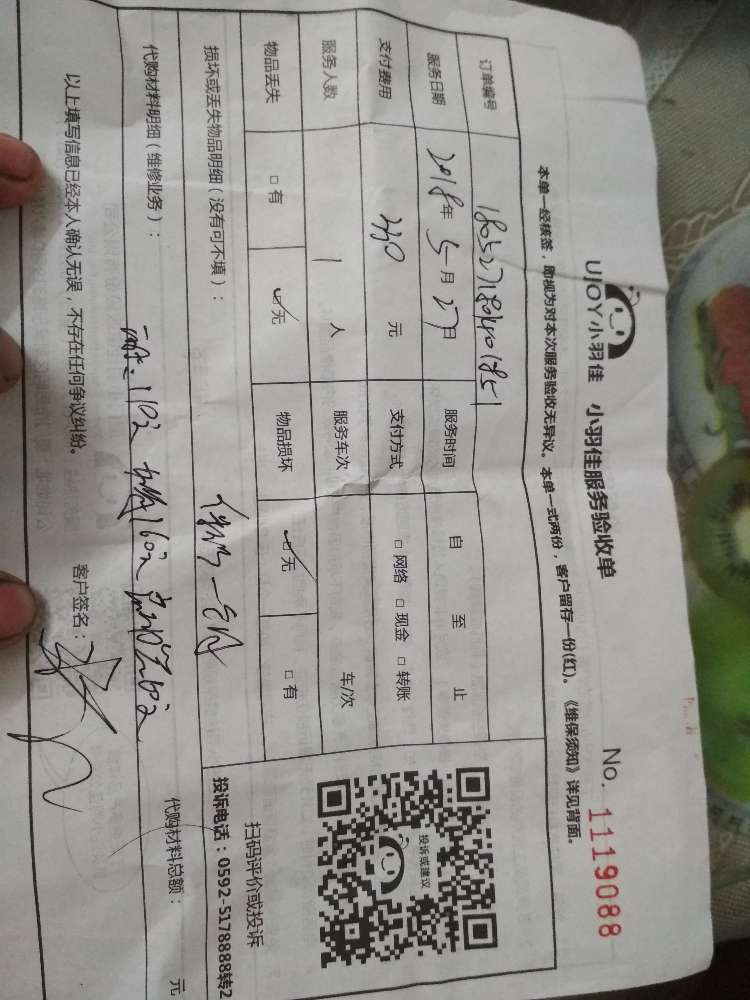 UJOY小羽佳 小羽佳服务验收单
No. 1119088
本单一经核签，即视为对本次服务验收无异议。本单一式两份，客户留存一份(红)。《维保须知》详见背面。
订单编号
服务日期 2018年 5月 27日 服务时间 自 至 止
支付费用 330 元 支付方式 □网络 □现金 □转账
服务人数 1 人 服务车次 车/次
物品丢失 □有 ☑无 物品损坏 ☑无 □有
投诉或建议
扫码评价或投诉
投诉电话：0592-5178888转2
损坏或丢失物品明细（没有可不填）：
代购材料明细（维修业务）： 代购材料总额： 元
以上填写信息已经本人确认无误，不存在任何争议纠纷。 客户签名：